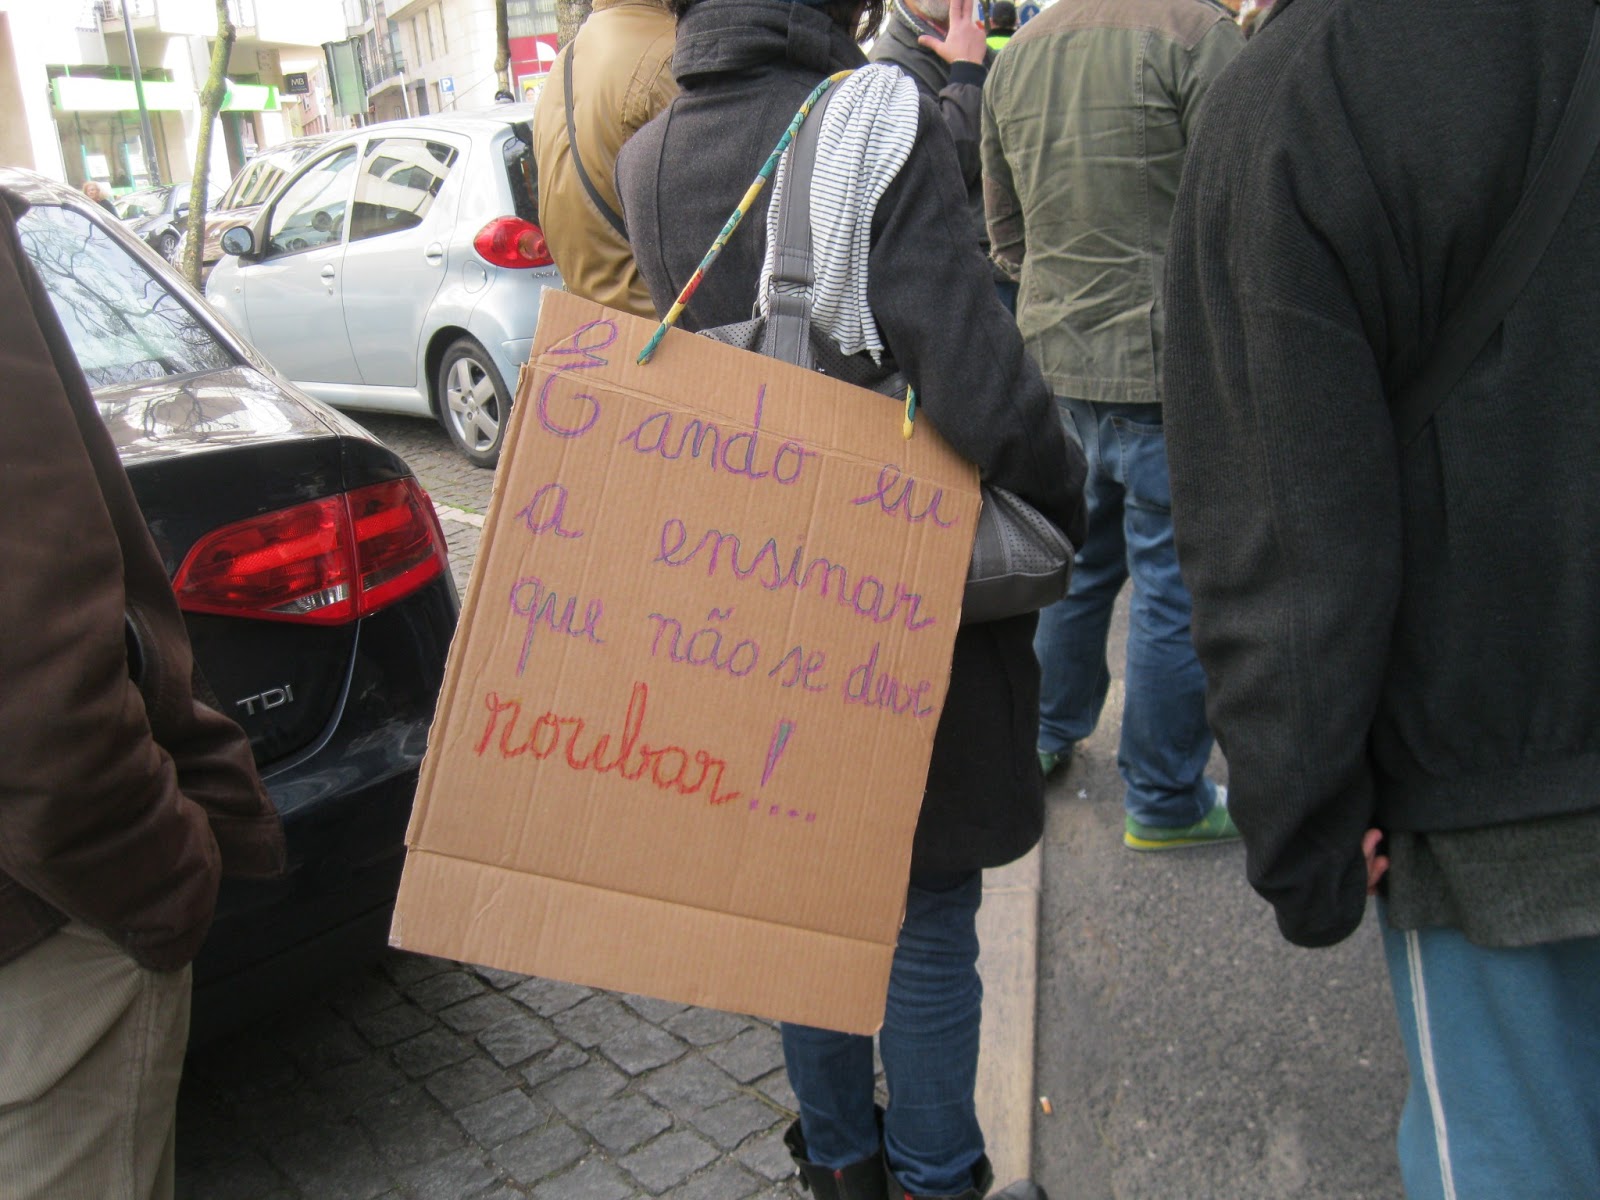 E ando eu
a ensinar
que não se deve
roubar!...
TDI
MB
P